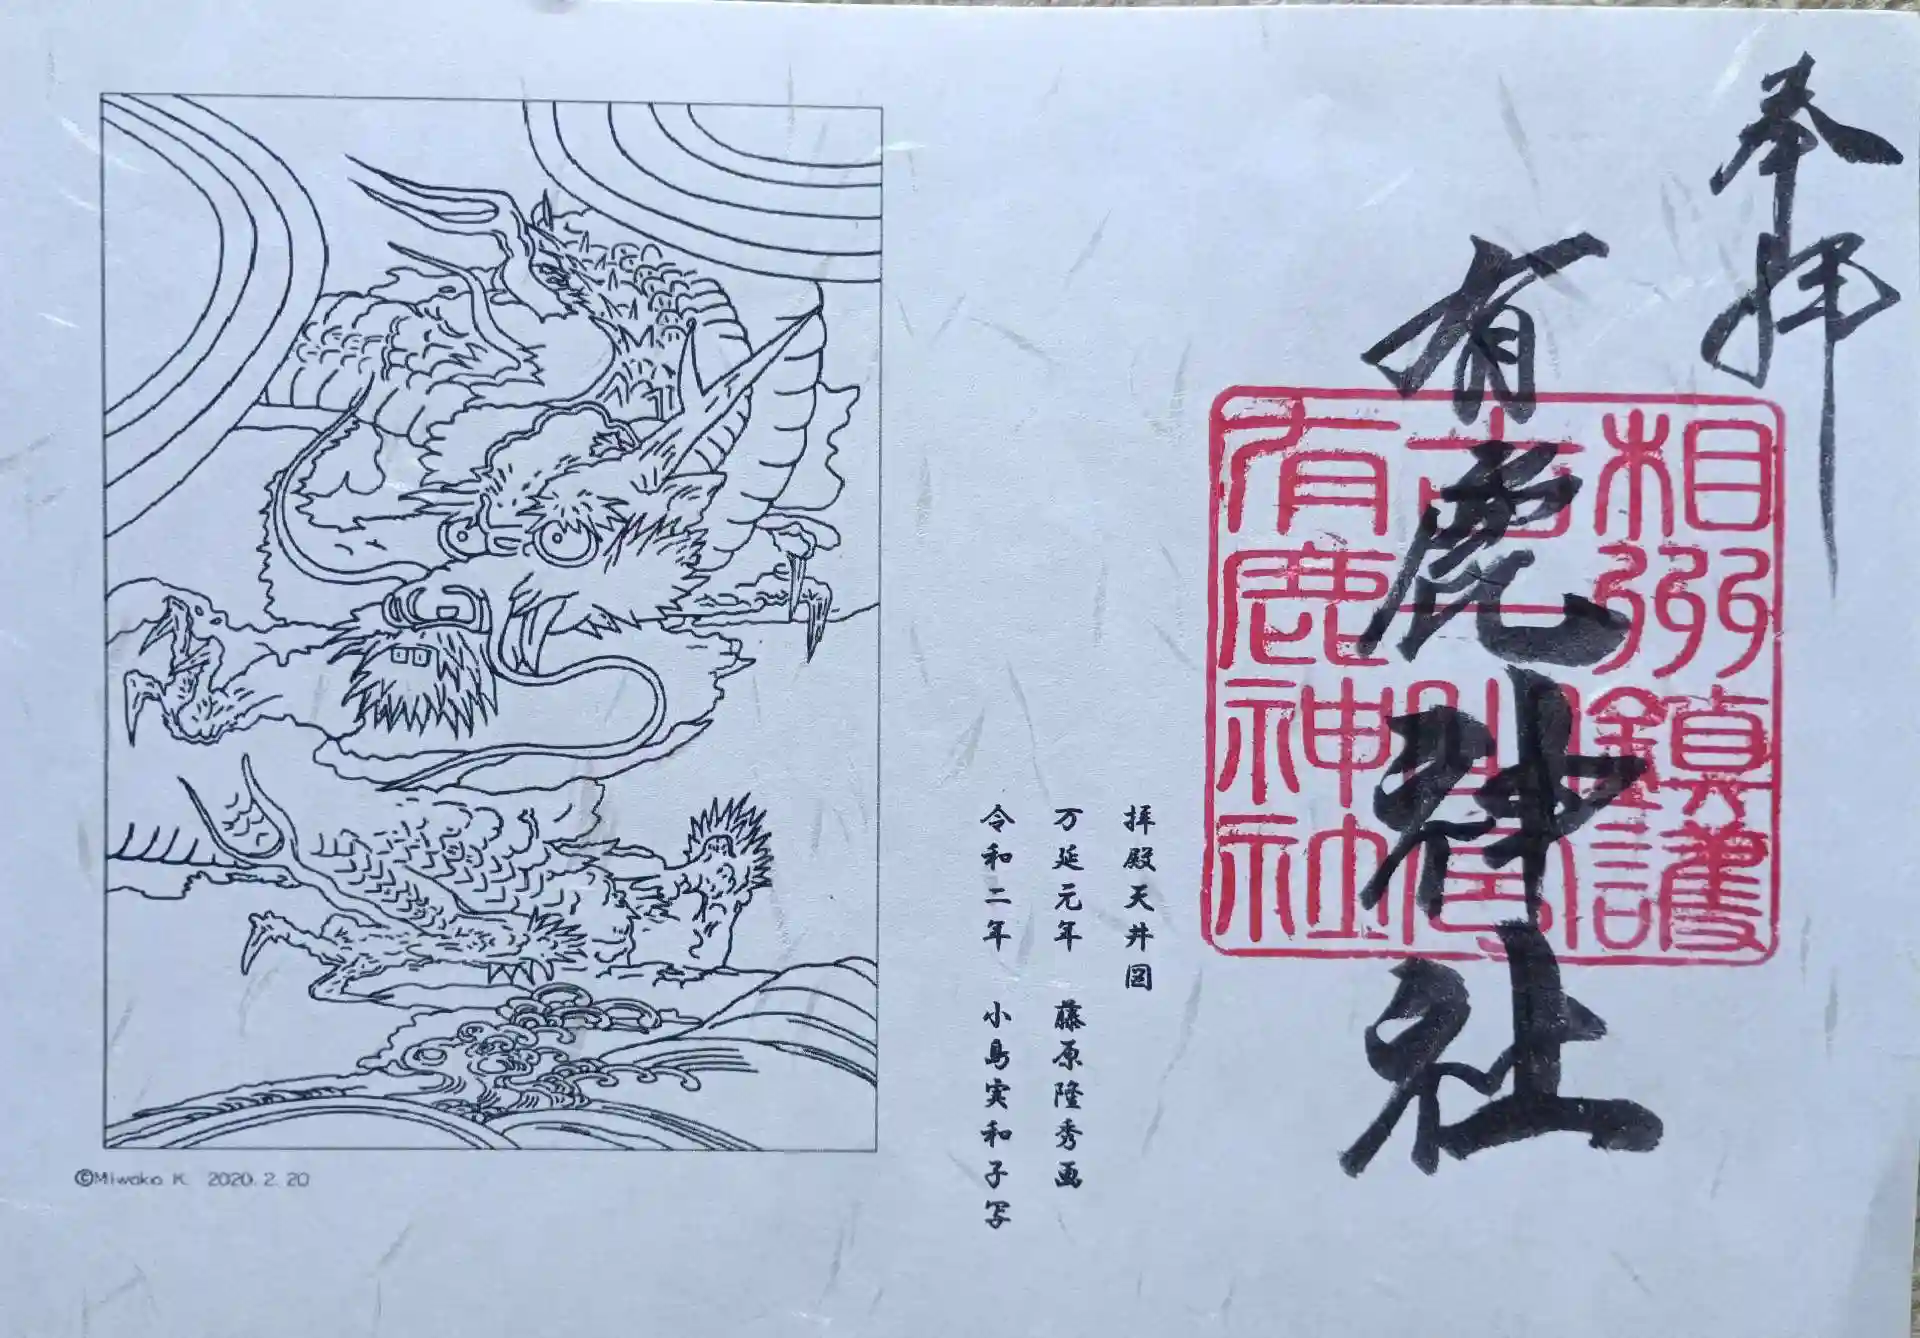 奉拝
有鹿神社
相州鎮護
有鹿神社
拝殿天井図
万延元年 藤原隆秀画
令和二年 小島実和子写
©Miwako K. 2020. 2. 20